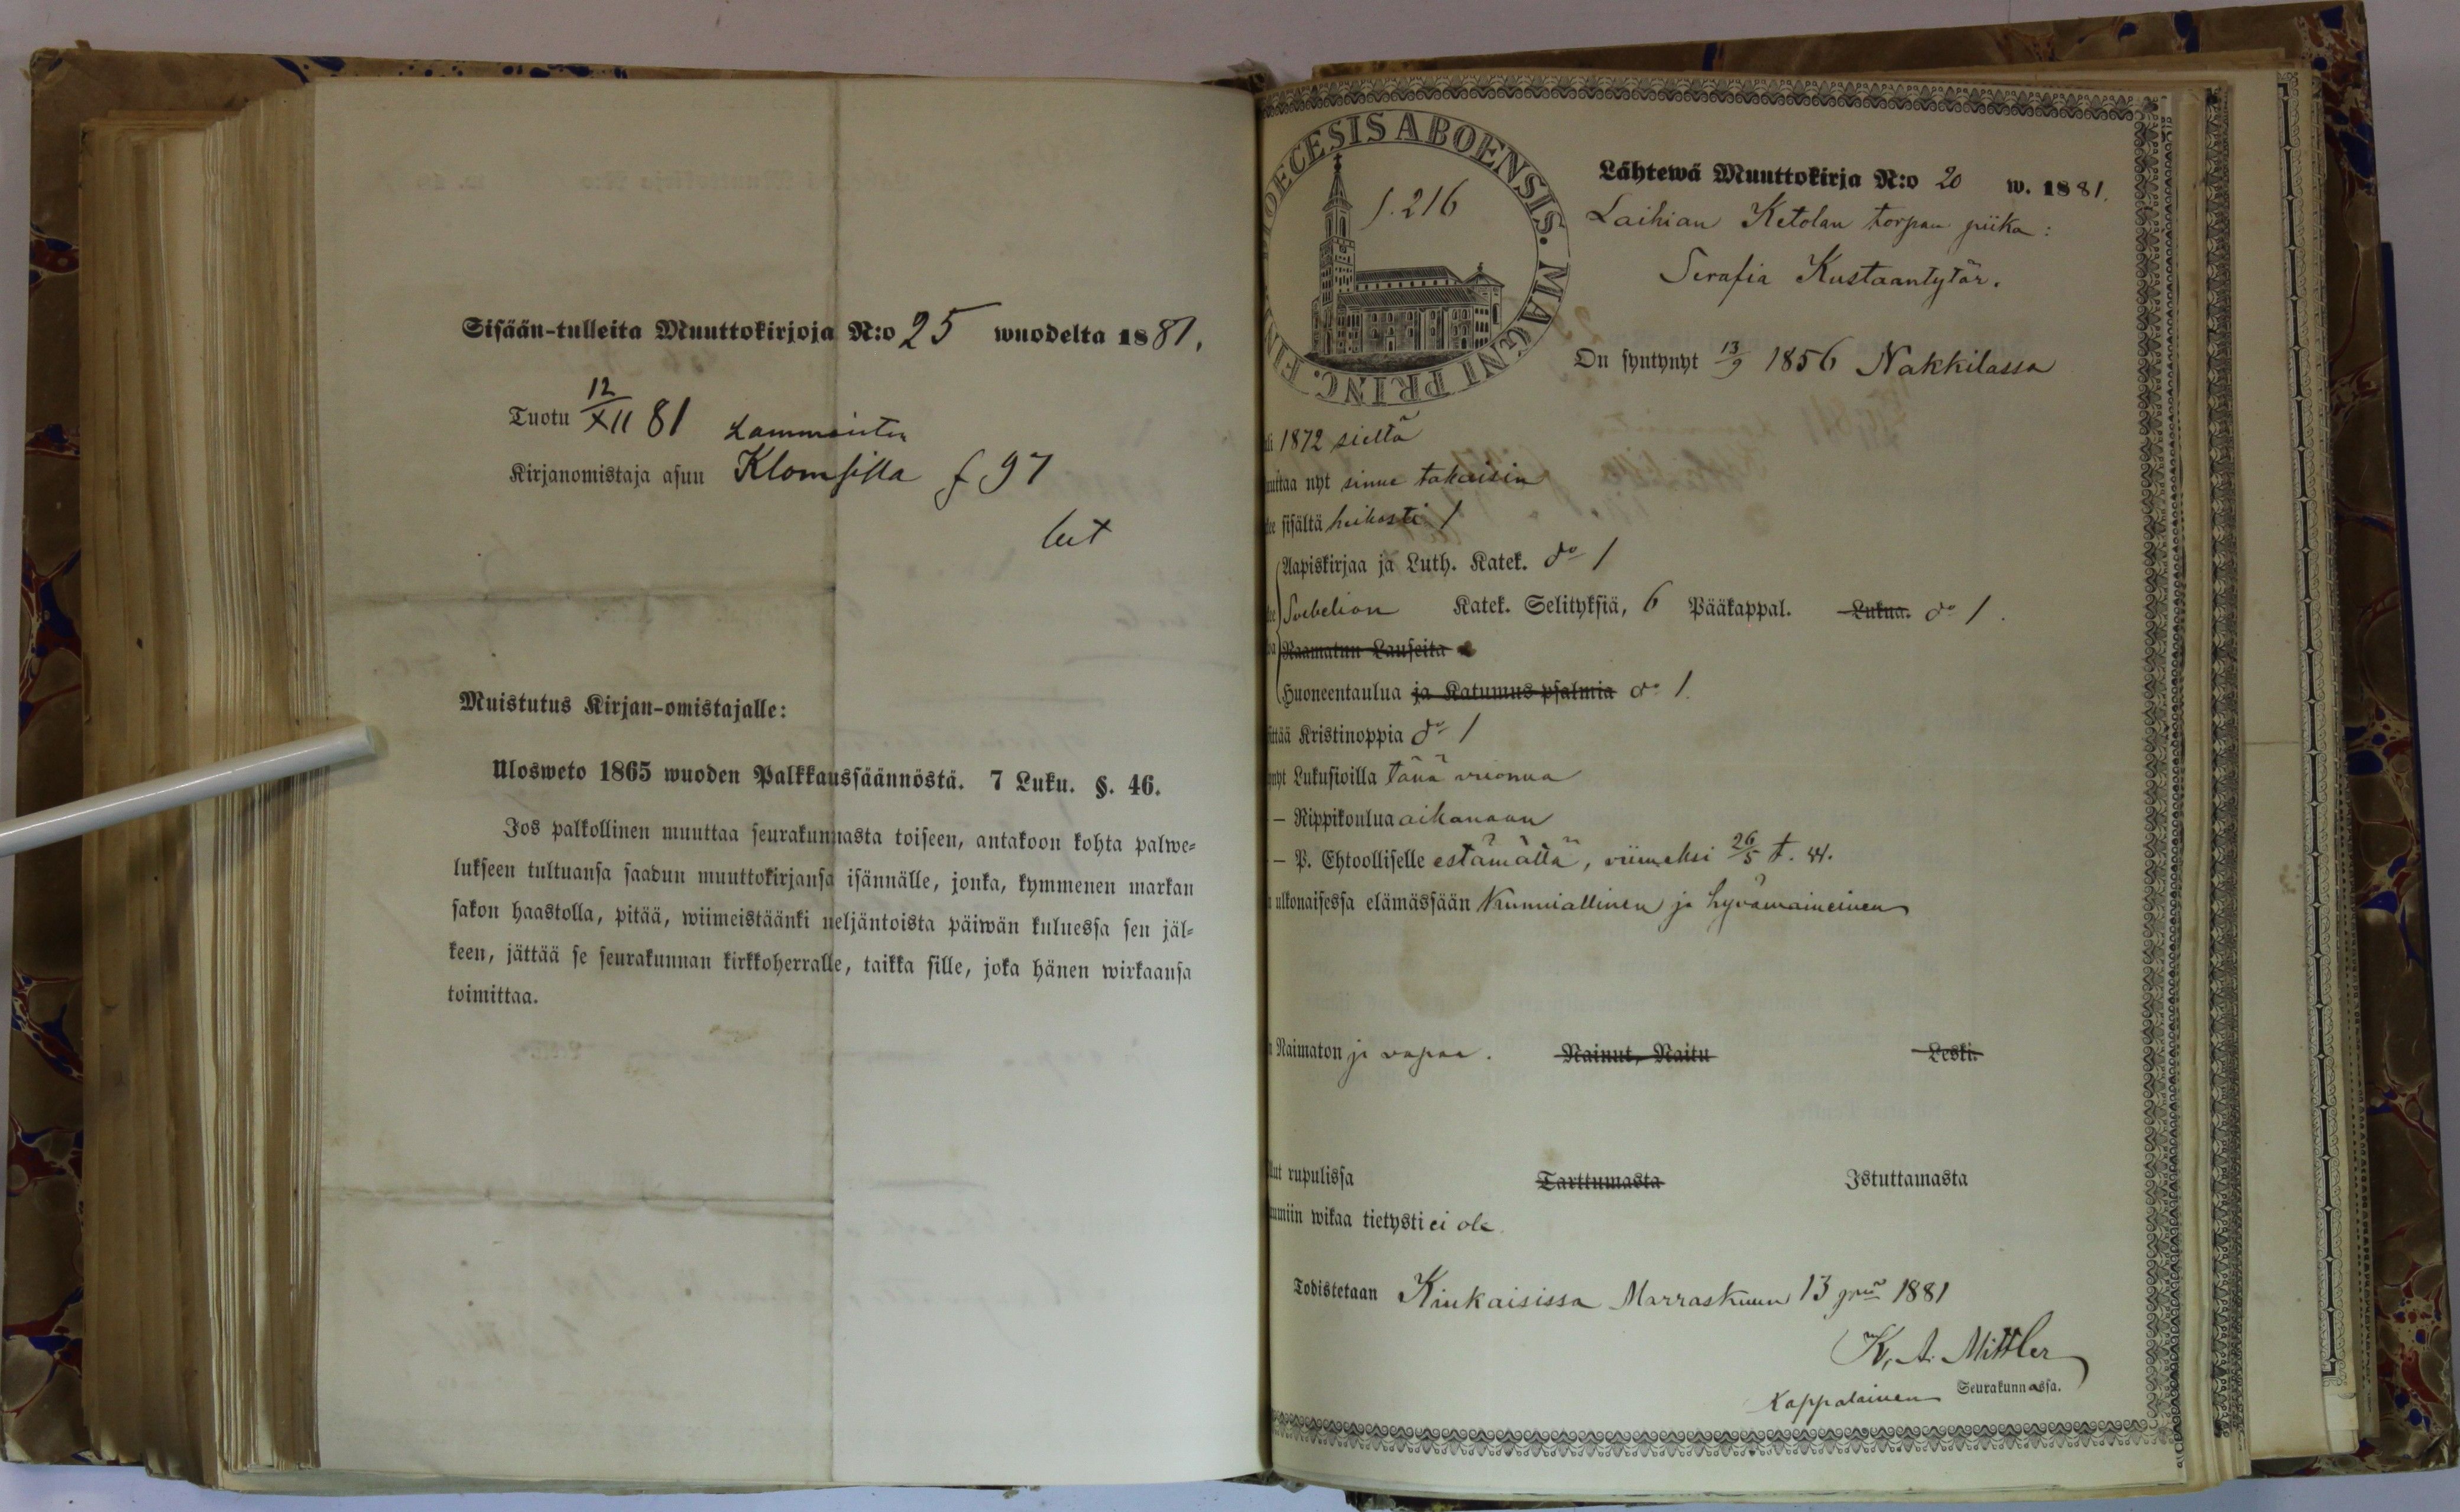 Sisään-tulleita Muuttokirjoja N:o 25 wuodelta 1881.
Tuotu 12/XII 81
Lammaisten
Kirjanomistaja asuu Klomsilla f 97
Muistutus Kirjan-omistajalle:
Ulosweto 1865 wuoden Palkkaussäännöstä. 7 Luku. §. 46.
Jos palkollinen muuttaa seurakunnasta toiseen, antakoon kohta palwe-
lukseen tultuansa saadun muuttokirjansa isännälle, jonka, kymmenen markan
sakon haastolla, pitää, wiimeistäänki neljäntoista päiwän kuluessa sen jäl-
keen, jättää se seurakunnan kirkkoherralle, taikka sille, joka hänen wirkaansa
toimittaa.
DIOECESIS ABOENSIS. MAGNI PRINC. FIN
f. 216
Lähtewä Muuttokirja N:o 20 w. 1881.
Laihian Ketolan torpan piika:
Serafia Kustaantytär.
On syntynyt 13/9 1856 Nakkilassa
1872 sieltä
nyt sinne takaisin
sisältä heikosti 1
Aapiskirjaa ja Luth. Katek. do 1
Svebelion Katek. Selityksiä, 6 Pääkappal. Lukua. do 1.
Raamatun Lauseita
Huoneentaulua ja Katumus-psalmia do 1.
Kristinoppia do 1
Lukusioilla tänä vuonna
— Rippikoulua aikanaan
— P. Ehtoolliselle estämättä, viimeksi 26/5 t. w.
ulkonaisessa elämässään kunniallinen ja hyvämaineinen
Naimaton ja vapaa. Nainut, Naitu Leski.
rupulissa Tarttumasta Istuttamasta
wikaa tietysti ei ole
Todistetaan Kiukaisissa Marraskuun 13 pnä 1881
K. A. Mittler
Kappalainen Seurakunnassa.